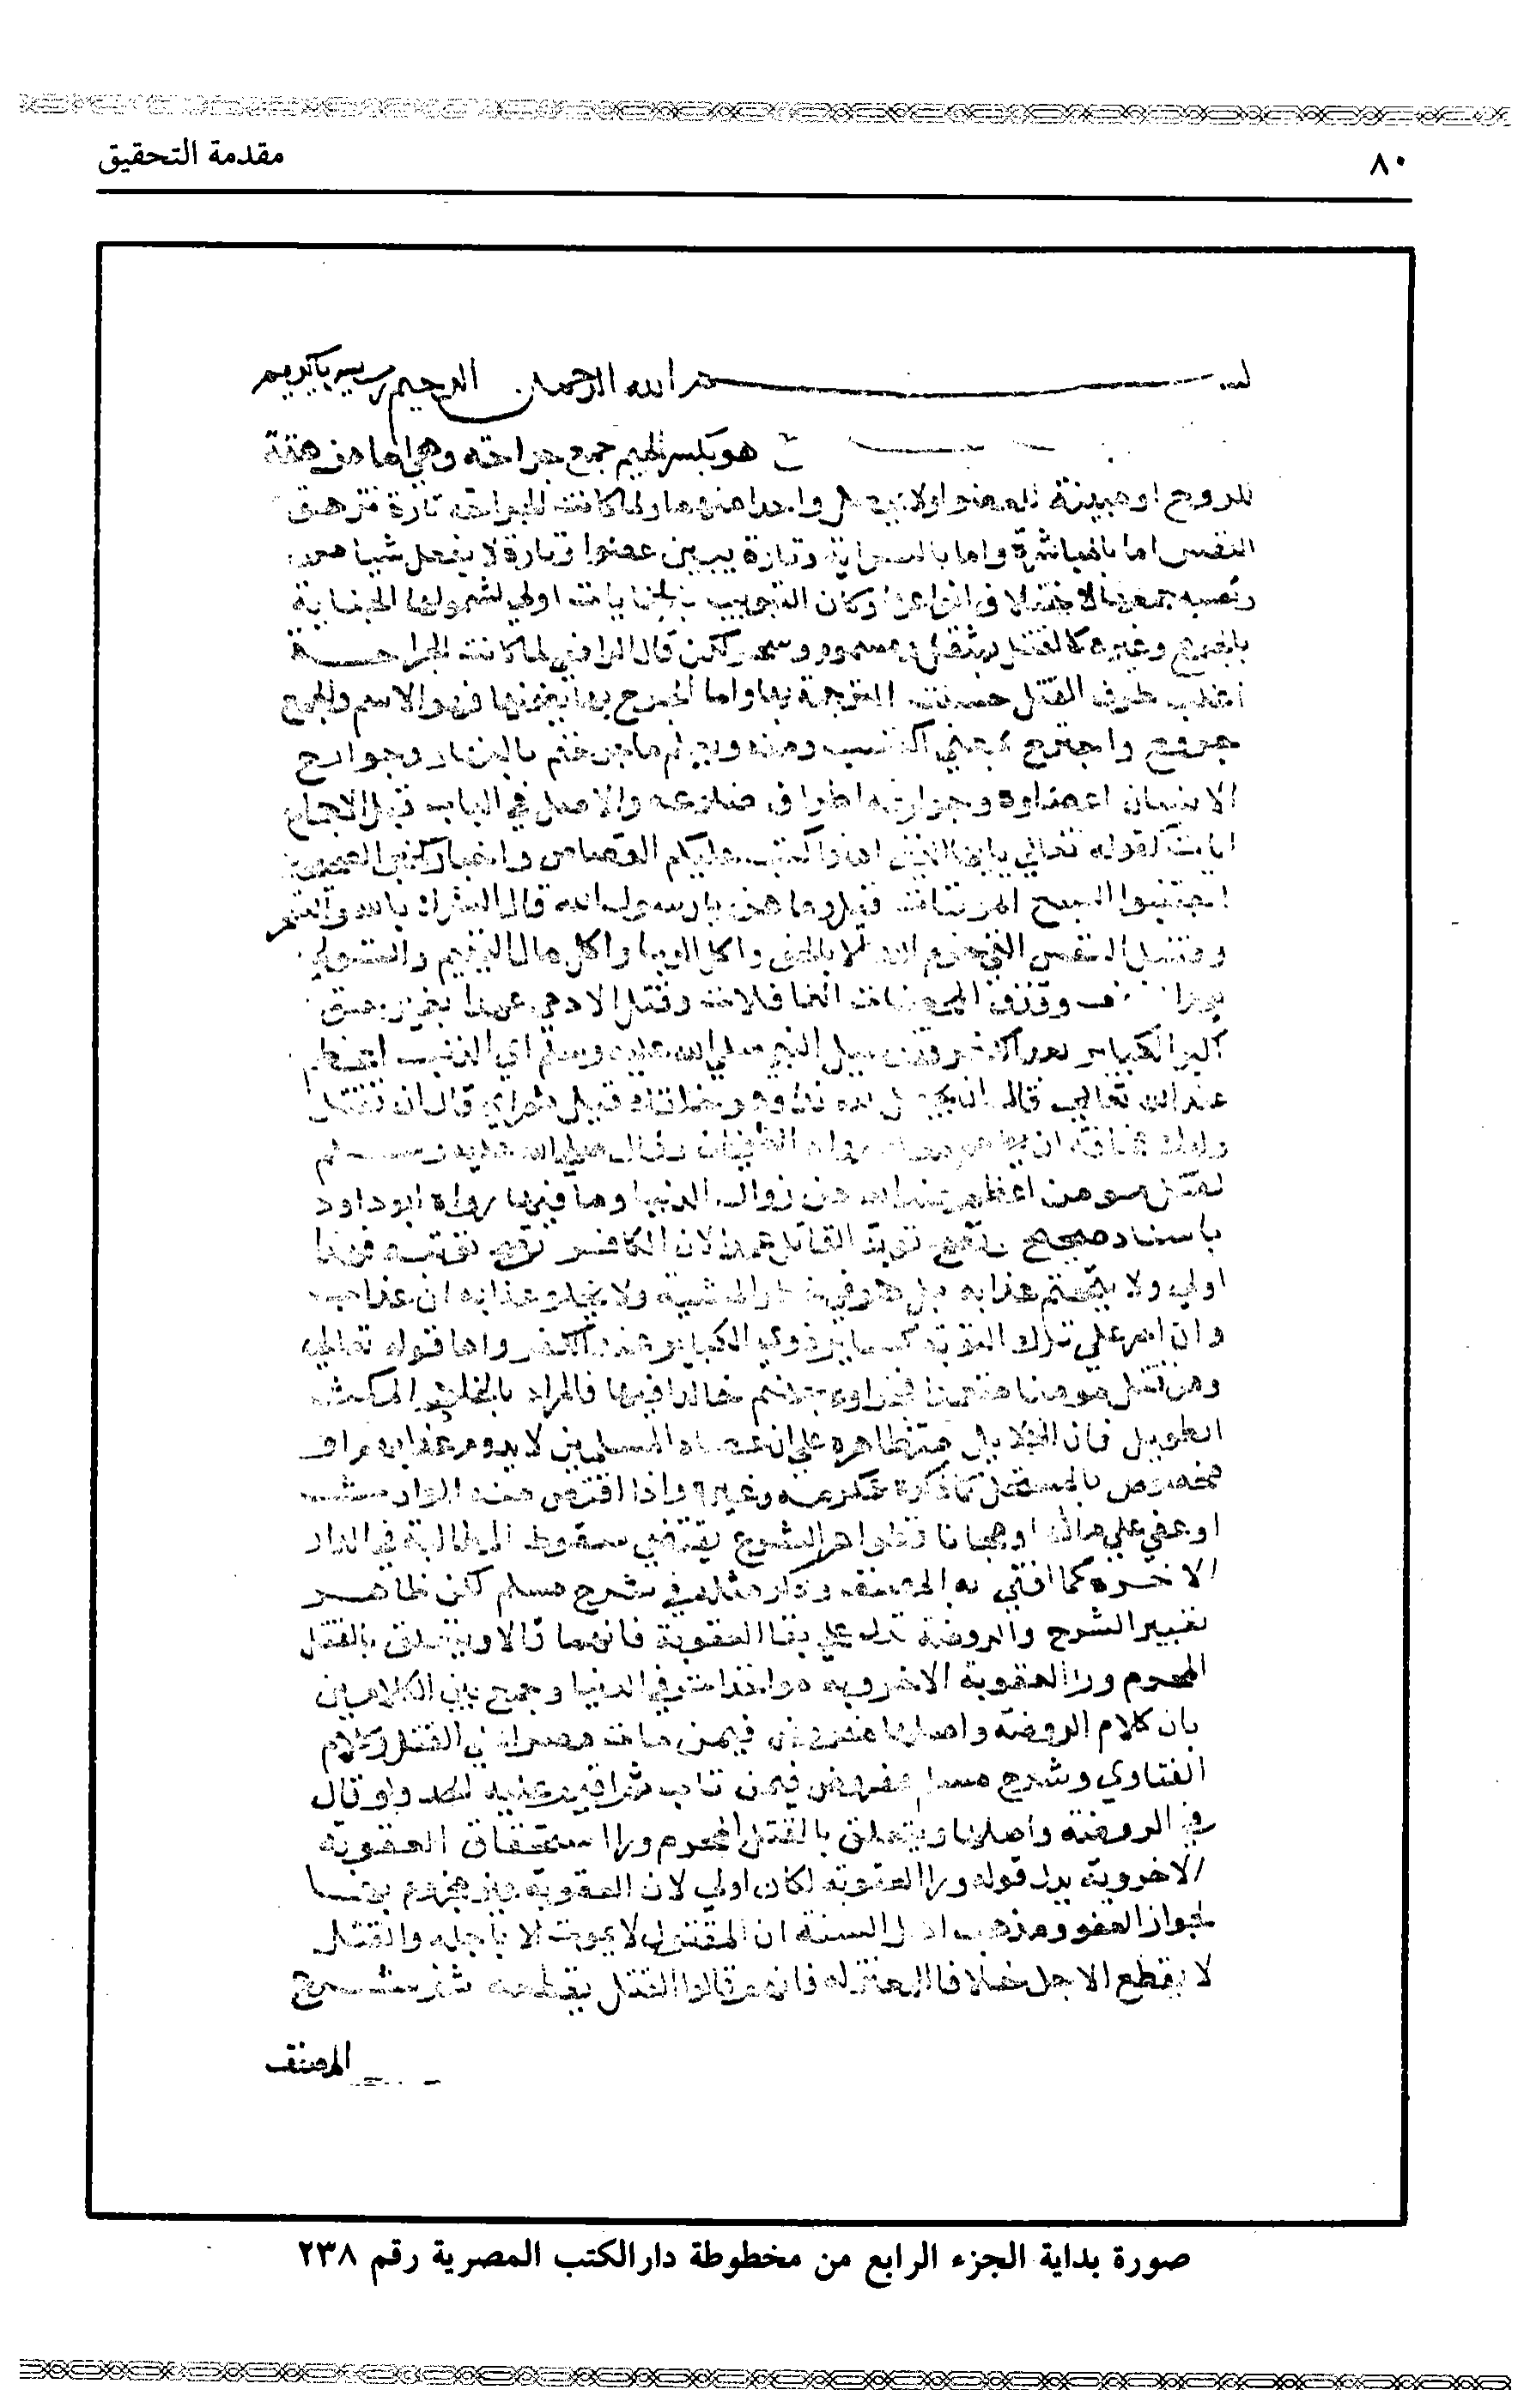 ٨٠
مقدمة التحقيق
بسم الله الرحمن الرحيم رب يسر يا كريم
هو بكسر الجيم جمع جراحه وهي اما مزهقة
للروح او مبينة للعضو اولا يحصل واحدا منهما ولما كانت الجراحه تارة تزهق
النفس اما بالمباشرة واما بالسراية وتارة يبين عضوا وتارة لا يفعل شيا من
جمعها لاختلاف انواعها وكان التبويب بالجنايات اولي لشمولها الجناية
بالجرح وغيره كالقتل بمثقل ومسموم وسحر لكن قال الرافعي لما كانت الجراحة
اغلب طرق القتل حسنت الترجمة بها واما الجرح بضمها فهو الاسم والجمع
جروح واجترح بمعني اكتسب ومنه ويعلم ما جرحتم بالنهار وجوارح
الانسان اعضاوه وجوارحه اطراف والاصل في الباب قبل الاجماع
ايات كقوله تعالي يا ايها الذين امنوا كتب عليكم القصاص واخبار كخبر الصحيحين
اجتنبوا السبع الموبقات قيل وما هن يا رسول الله قال الشرك بالله والسحر
وقتل النفس التي حرم الله الا بالحق واكل الربا واكل مال اليتيم والتولي
يوم الزحف وقذف المحصنات الغافلات وقتل الادمي عمدا بغير حق
اكبر الكباير بعد الكفر وقد سيل النبي صلي الله عليه وسلم اي الذنب اعظم
عند الله تعالي قال ان تجعل لله ندا وهو خلقك قيل ثم اي قال ان تقتل
ولدك مخافة ان يطعم معك رواه الشيخان وقال صلي الله عليه وسلم
لقتل مومن اعظم عند الله من زوال الدنيا وما فيها رواه ابو داود
باسناد صحيح وتصح توبة القاتل عمدا لان الكافر تصح توبته فهذا
اولي ولا يتحتم عذابه بل هو في خطر المشية ولا يخلد عذابه ان عذب
وان اصر علي ترك التوبة كساير ذوي الكباير غير الكفر واما قوله تعالي
ومن يقتل مومنا متعمدا فجزاوه جهنم خالدا فيها فالمراد بالخلود المكث
الطويل فان الدلايل متظاهره علي ان عصاه المسلمين لا يدوم عذابهم او
مخصوص بالمستحل كما ذكره عكرمه وغيره واذا اقتص منه الوارث
او عفي علي مال او مجانا فظواهر الشرع يقتضي سقوط المطالبة في الدار
الاخره كما افتي به المصنف وذكر مثله في شرح مسلم لكن ظاهر
تعبير الشرح والروضة يدل علي بقا العقوبة فانهما قالا ويتعلق بالقتل
المحرم ورا العقوبة الاخرويه مواخذات في الدنيا وجمع بين الكلامين
بان كلام الروضه واصلها مفروض فيمن مات مصرا علي القتل وكلام
الفتاوي وشرح مسلم مفروض فيمن تاب ثم اقيم عليه الحد ولو قال
في الروضة واصلها ويتعلق بالقتل المحرم ورا استحقاق العقوبة
الاخروية بدل قوله ورا العقوبة لكان اولي لان العقوبة غير مجزوم بها
لجواز العفو ومذهب اهل السنة ان المقتول لا يموت الا باجله والقتل
لا يقطع الاجل خلافا للمعتزله فانهم قالوا القتل يقطعه ثم شرع
المصنف
صورة بداية الجزء الرابع من مخطوطة دار الكتب المصرية رقم ٢٣٨